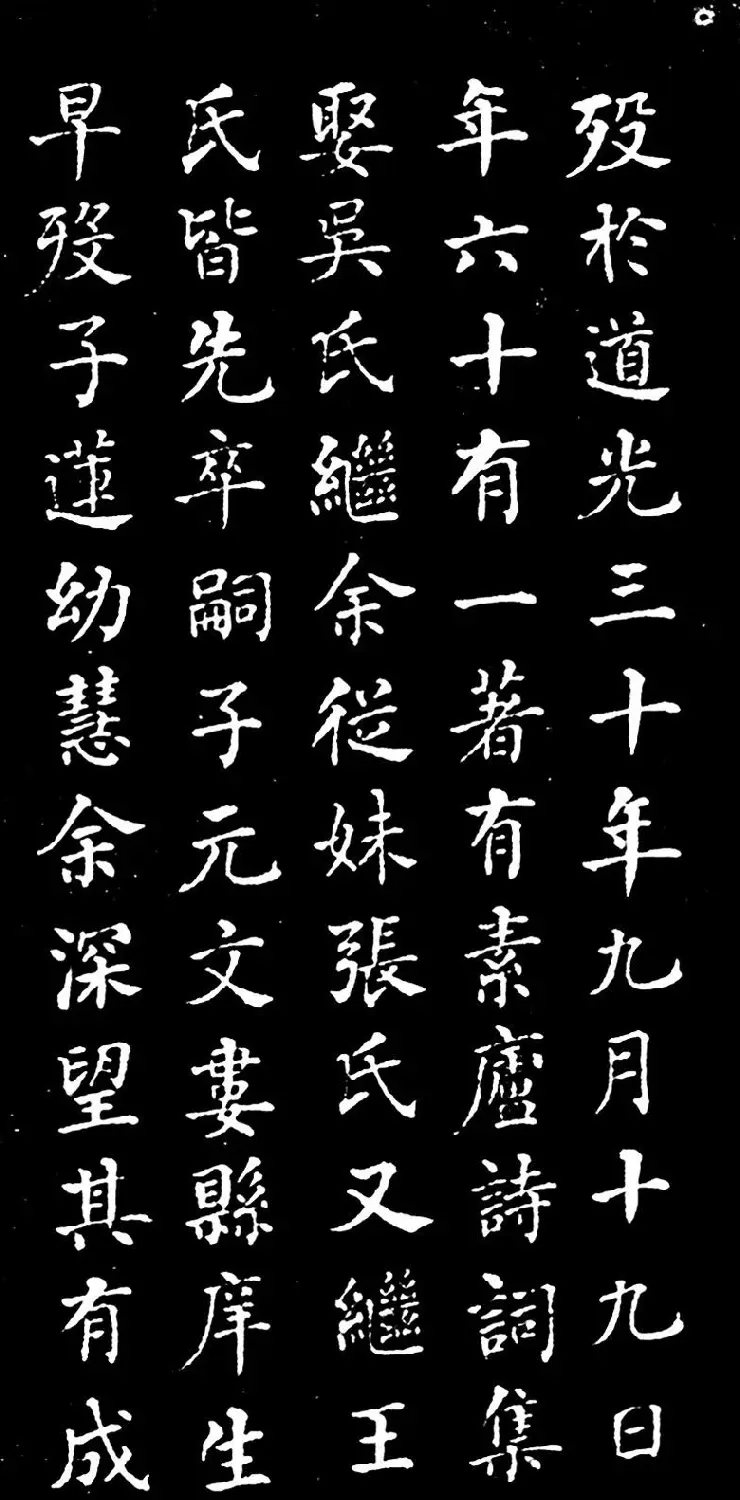 歿於道光三十年九月十九日
年六十有一著有素廬詩詞集
娶吳氏繼余從妹張氏又繼王
氏皆先卒嗣子元文婁縣庠生
早歿子蓮幼慧余深望其有成